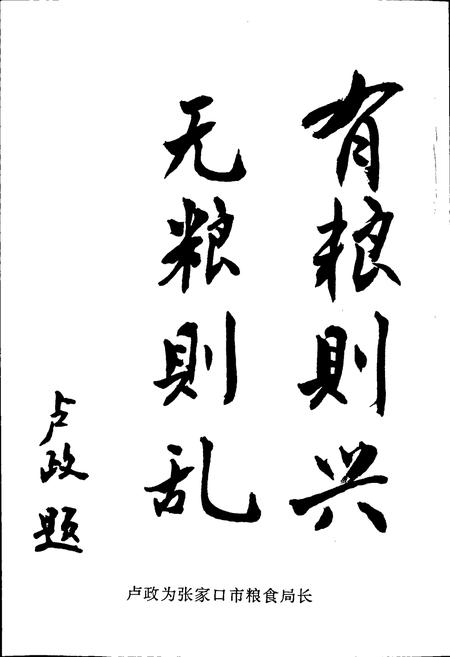 有粮則兴
无粮則乱
卢政题
卢政为张家口市粮食局长